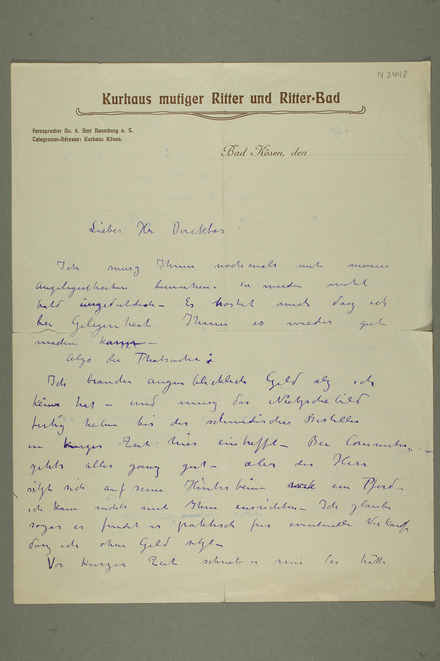 N 2448
Kurhaus mutiger Ritter und Ritter-Bad
Fernsprecher No. 8. Amt Naumburg a. S.
Telegramm-Adresse: Kurhaus Kösen.
Bad Kösen, den
Lieber Hr Direktor
Ich muss Ihnen nochmals mit meinen
Angelegenheiten kommen. Sie werden wohl
bald ungeduldich – Es kostet mich dasz ich
bei Gelegenheit Ihnen es wieder gut
machen kann –
Also die Thatsache:
Ich brauche augenblicklich Geld als ich
keins hat – und musz das Nietzschebild
fertig haben bis der schwedische Besteller
in kurzer Zeit hier eintrefft – Bei
gehts alles ganz gut – aber der Herr
setzt sich auf seine wie ein Pferd –
ich kann nichts mit Ihm ausrichten – Ich glaube
sogar er findet es praktisch für eventuelle Verkauf
dasz ich ohne Geld
Vor kurzer Zeit schrieb er mir der hätte